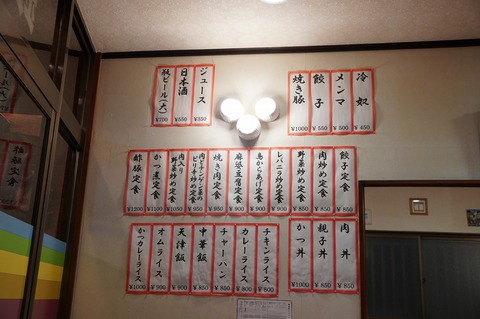 ジュース
¥350
日本酒
¥350
瓶ビール(大)
¥700
冷奴
¥450
メンマ
¥500
餃子
¥550
焼き豚
¥1000
餃子定食
¥850
肉炒め定食
¥850
野菜炒め定食
¥850
レバニラ炒め定食
¥900
鳥からあげ定食
¥900
麻婆豆腐定食
¥900
焼き肉定食
¥900
肉とチンゲン菜の
ピリ辛炒め定食
¥950
肉入り
野菜炒め定食
かつ煮定食
¥1100
酢豚定食
¥1200
肉丼
¥850
親子丼
¥850
かつ丼
¥1000
チキンライス
¥800
カレーライス
¥800
チャーハン
¥850
中華飯
¥850
天津飯
¥900
オムライス
¥900
かつカレーライス
¥1000